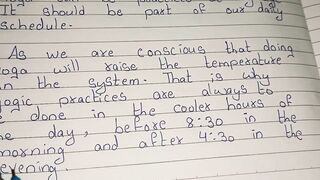 It should be part of our daily
schedule.
As we are conscious that doing
yoga will raise the temperature
in the system. That is why
yogic practices are always to
be done in the cooler hours of
the day, before 8:30 in the
morning and after 4:30 in the
evening.